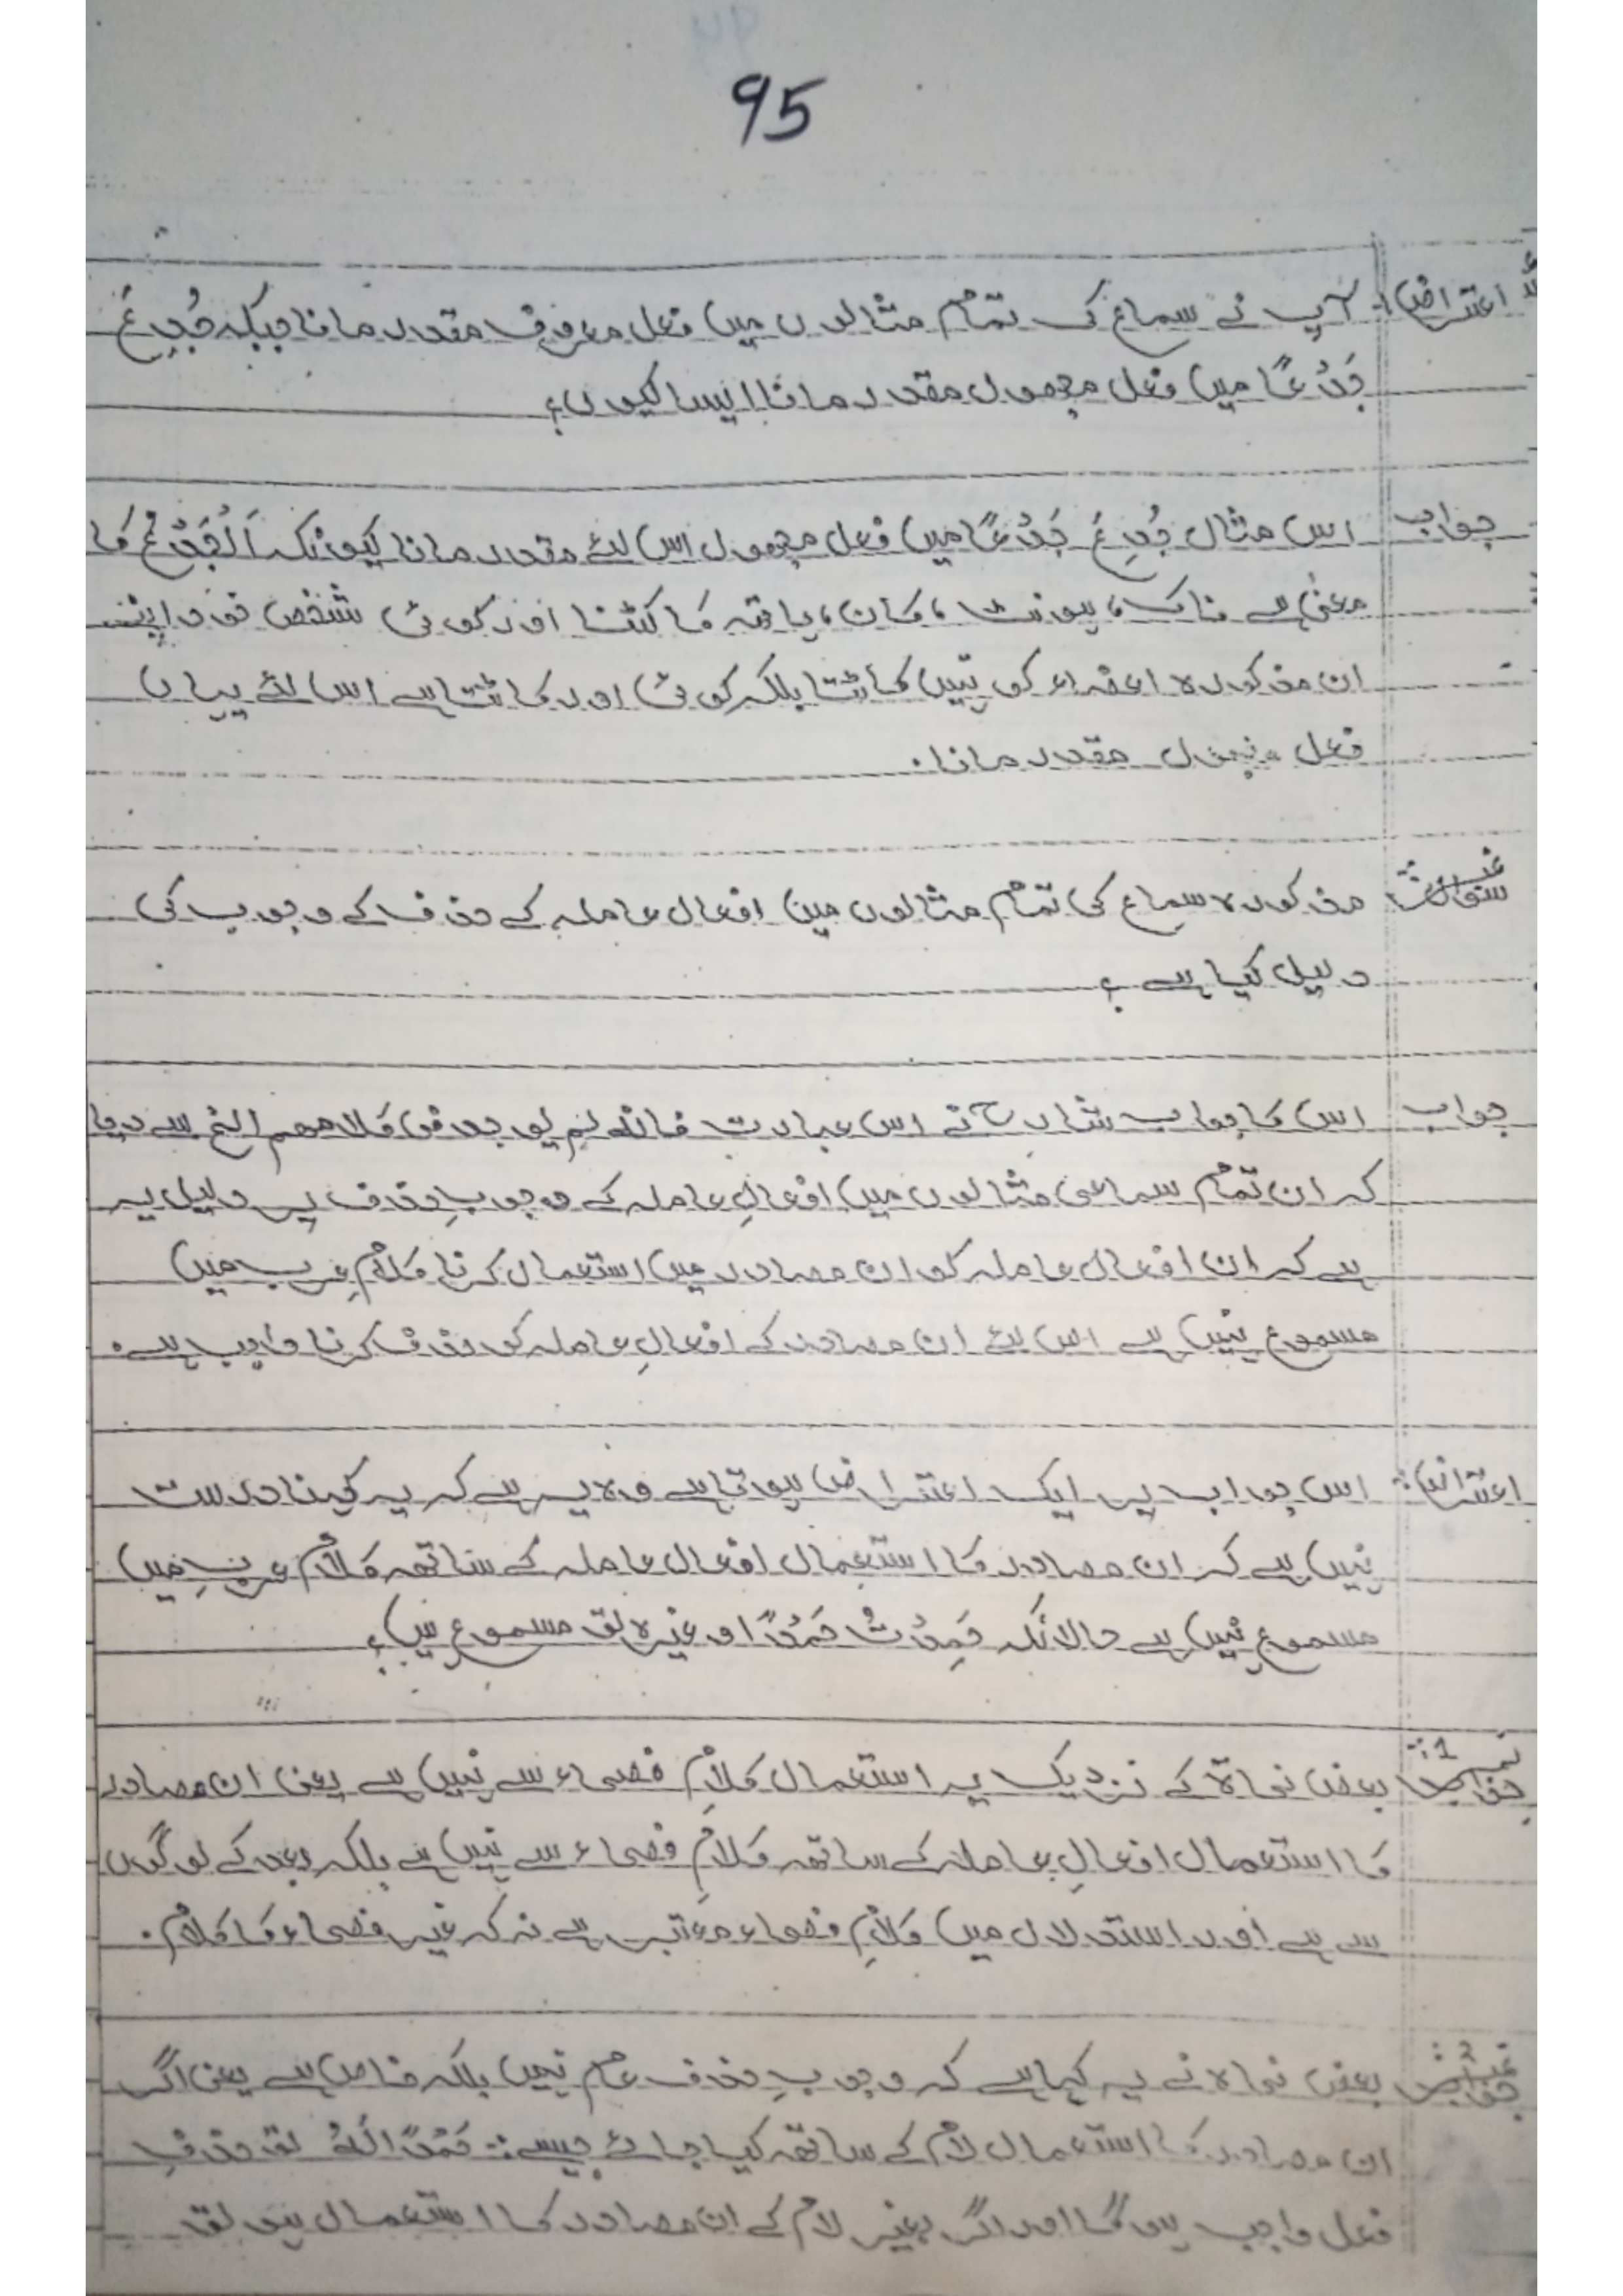 95
اعتراض: آپ نے سماع کی تمام مثالوں میں فعل معروف مقدر مانا جبکہ جُدِعَ
جَدْعًا میں فعل مجہول مقدر مانا ایسا کیوں؟
جواب اس مثال جُدِعَ جَدْعًا میں فعل مجہول اس لئے مقدر مانا کیونکہ اَلْجَدْعُ کا
معنیٰ ہے ناک، ہونٹ، کان، ہاتھ کا کٹنا اور کوئی شخص خود اپنے
ان مذکورہ اعضاء کو نہیں کاٹتا بلکہ کوئی اور کاٹتا ہے اس لئے یہاں
فعل مجہول مقدر مانا۔
سوال: مذکورہ سماع کی تمام مثالوں میں افعال عاملہ کے حذف کے وجوب کی
دلیل کیا ہے؟
جواب اس کا جواب شارحؒ نے اس عبارت فانه لم یوجد فی کلامهم الخ سے دیا
کہ ان تمام سماعی مثالوں میں افعالِ عاملہ کے وجوبِ حذف پر دلیل یہ
ہے کہ ان افعال عاملہ کو ان مصادر میں استعمال کرنا کلامِ عرب میں
مسموع نہیں ہے اس لئے ان مصادر کے افعالِ عاملہ کو حذف کرنا واجب ہے۔
اعتراض: اس جواب پر ایک اعتراض ہوتا ہے وہ یہ ہے کہ یہ کہنا درست
نہیں ہے کہ ان مصادر کا استعمال افعال عاملہ کے ساتھ کلامِ عرب میں
مسموع نہیں ہے حالانکہ حَمِدْتُ حَمْدًا او غیرہ تو مسموع ہیں؟
جواب نمبر 1: بعض نحاۃ کے نزدیک یہ استعمال کلامِ فصحاء سے نہیں ہے یعنی ان مصادر
کا استعمال افعالِ عاملہ کے ساتھ کلامِ فصحاء سے نہیں ہے بلکہ بعد کے لوگوں
سے ہے اور استدلال میں کلامِ فصحاء معتبر ہے نہ کہ غیر فصحاء کا کلام۔
جواب نمبر 2: بعض نحاۃ نے یہ کہا ہے کہ وجوبِ حذف عام نہیں بلکہ خاص ہے یعنی اگر
ان مصادر کا استعمال لام کے ساتھ کیا جائے جیسے: حَمْدًا لَهُ تو حذفِ
فعل واجب ہوگا اور اگر بغیر لام کے ان مصادر کا استعمال ہو تو